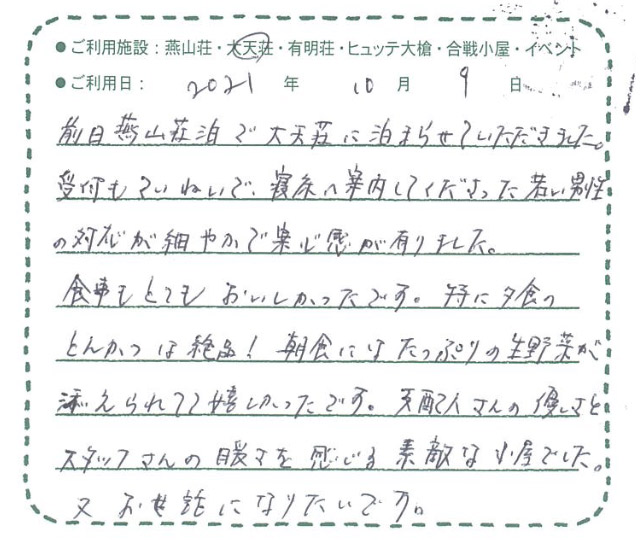 ●ご利用施設：燕山荘・大天荘・有明荘・ヒュッテ大槍・合戦小屋・イベント
●ご利用日： 2021 年 10 月 9 日
前日燕山荘泊で大天荘に泊まらせていただきました。
受付もていねいで、寝床へ案内してくださった若い男性
の対応が細やかで安心感が有りました。
食事もとてもおいしかったです。特に夕食の
とんかつは絶品！朝食にはたっぷりの生野菜が
添えられてて嬉しかったです。支配人さんの優しさと
スタッフさんの暖さを感じる素敵な小屋でした。
又お世話になりたいです。